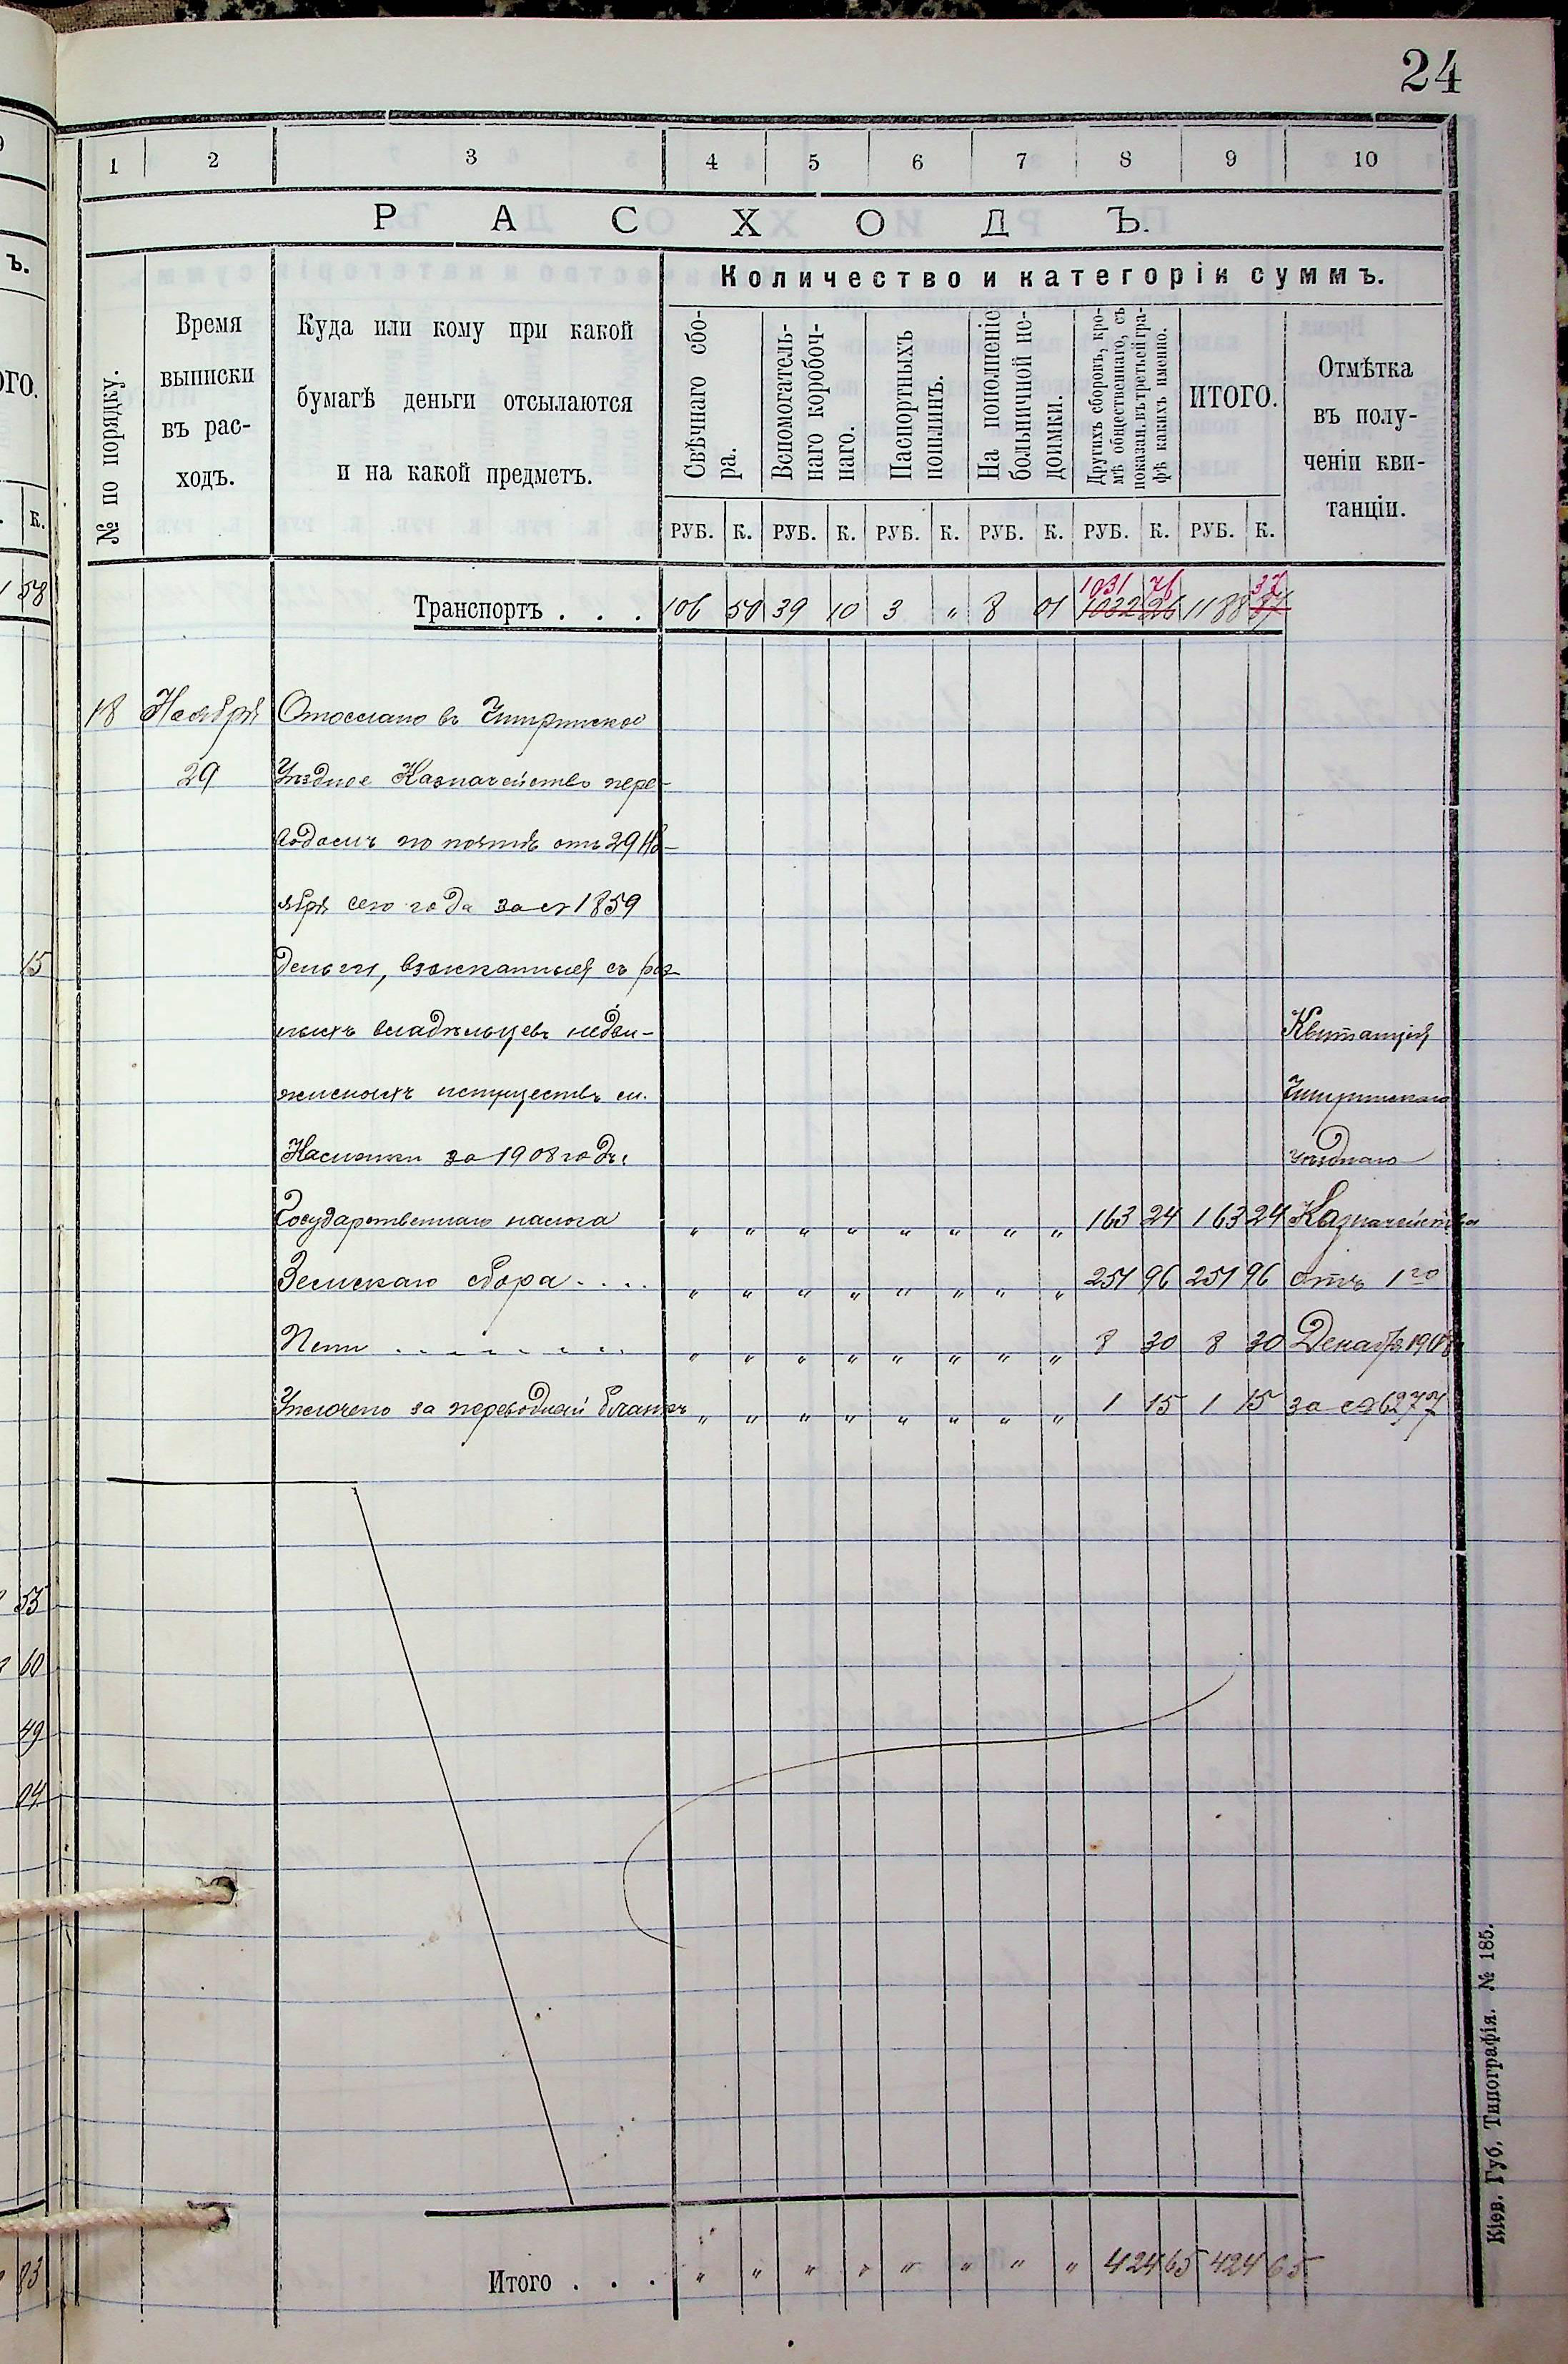 24
1 2 3 4 5 6 7 8 9 10
РАСХОДЪ.
№ по порядку.
Время выписки въ рас-ходъ.
Куда или кому при какой
бумагѣ деньги отсылаются
и на какой предметъ.
Количество и категоріи суммъ.
Свѣчнаго сбо-
ра.
Вспомогатель-
наго коробоч-
наго.
Паспортныхъ
пошлинъ.
На пополненіе
больничной не-
доимки.
Другихъ сборовъ, кро-
мѣ общественнаго, съ
показан. въ третьей гра-
фѣ какихъ именно.
ИТОГО.
Отмѣтка
въ полу-
ченіи кви-
танціи.
РУБ. К. РУБ. К. РУБ. К. РУБ. К. РУБ. К. РУБ. К.
1031 76 37
Транспортъ . . . 106 50 39 10 3 " 8 01 1032 26 1188 87
18 Ноября Отослано въ Чигиринское
29 Уѣздное Казначейство пере-
водомъ по почтѣ отъ 29 Но-
ября сего года за № 1859
деньги, взысканныя съ раз-
ныхъ владѣльцевъ недви-
жимыхъ имуществъ м. Квитанція
Чигиринскаго
за 1908 годъ: уѣзднаго
Государственнаго налога " " " " " " " " 163 24 163 24 Казначейства
Земскаго сбора .... " " " " " " " " 251 96 251 96 отъ 1го
Пени ........ " " " " " " " " 8 30 8 30 Декабря 1908
Уплочено за переводный бланкъ " " " " " " " " 1 15 1 15 за № 6277
Итого . . . " " " " " " " " 424 65 424 65
Кіев. Губ. Типографія. № 185.
Ъ.
ОГО.
К.
58
15
53
60
49
04
83